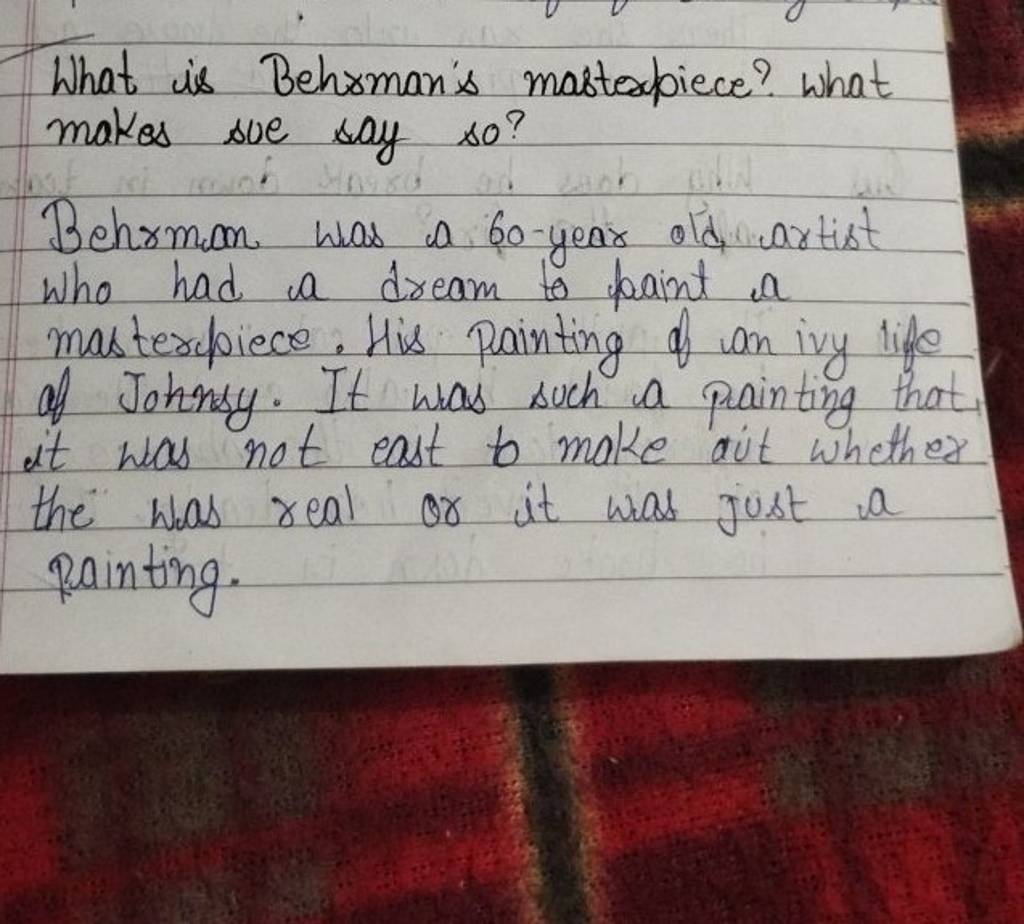 What is Behrman's masterpiece? what
makes sue say so?
Behrman was a 60-year old artist
who had a dream to paint a
masterpiece. His painting of an ivy life
of Johnsy. It was such a painting that
it was not east to make out whether
the was real or it was just a
painting.